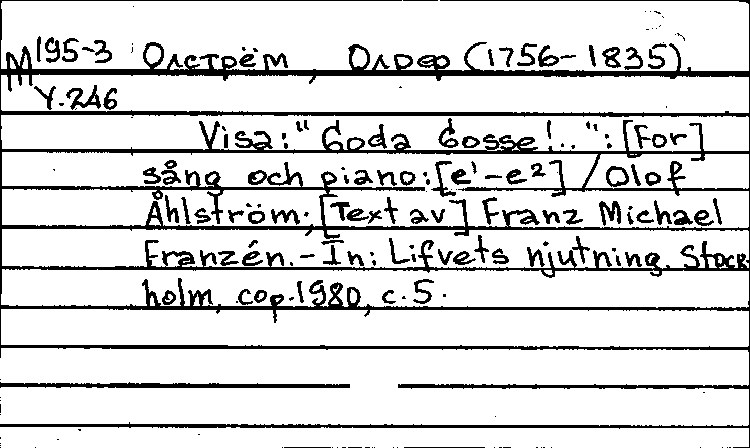 М195-3 Олстрём, Олоф (1756-1835).
Y.246
Visa: "Goda Gosse!..": [For]
sång och piano: [e¹-e²] / Olof
Åhlström; [Text av] Franz Michael
Franzén. - In: Lifvets njutning. Stock-
holm, cop. 1980, с. 5.